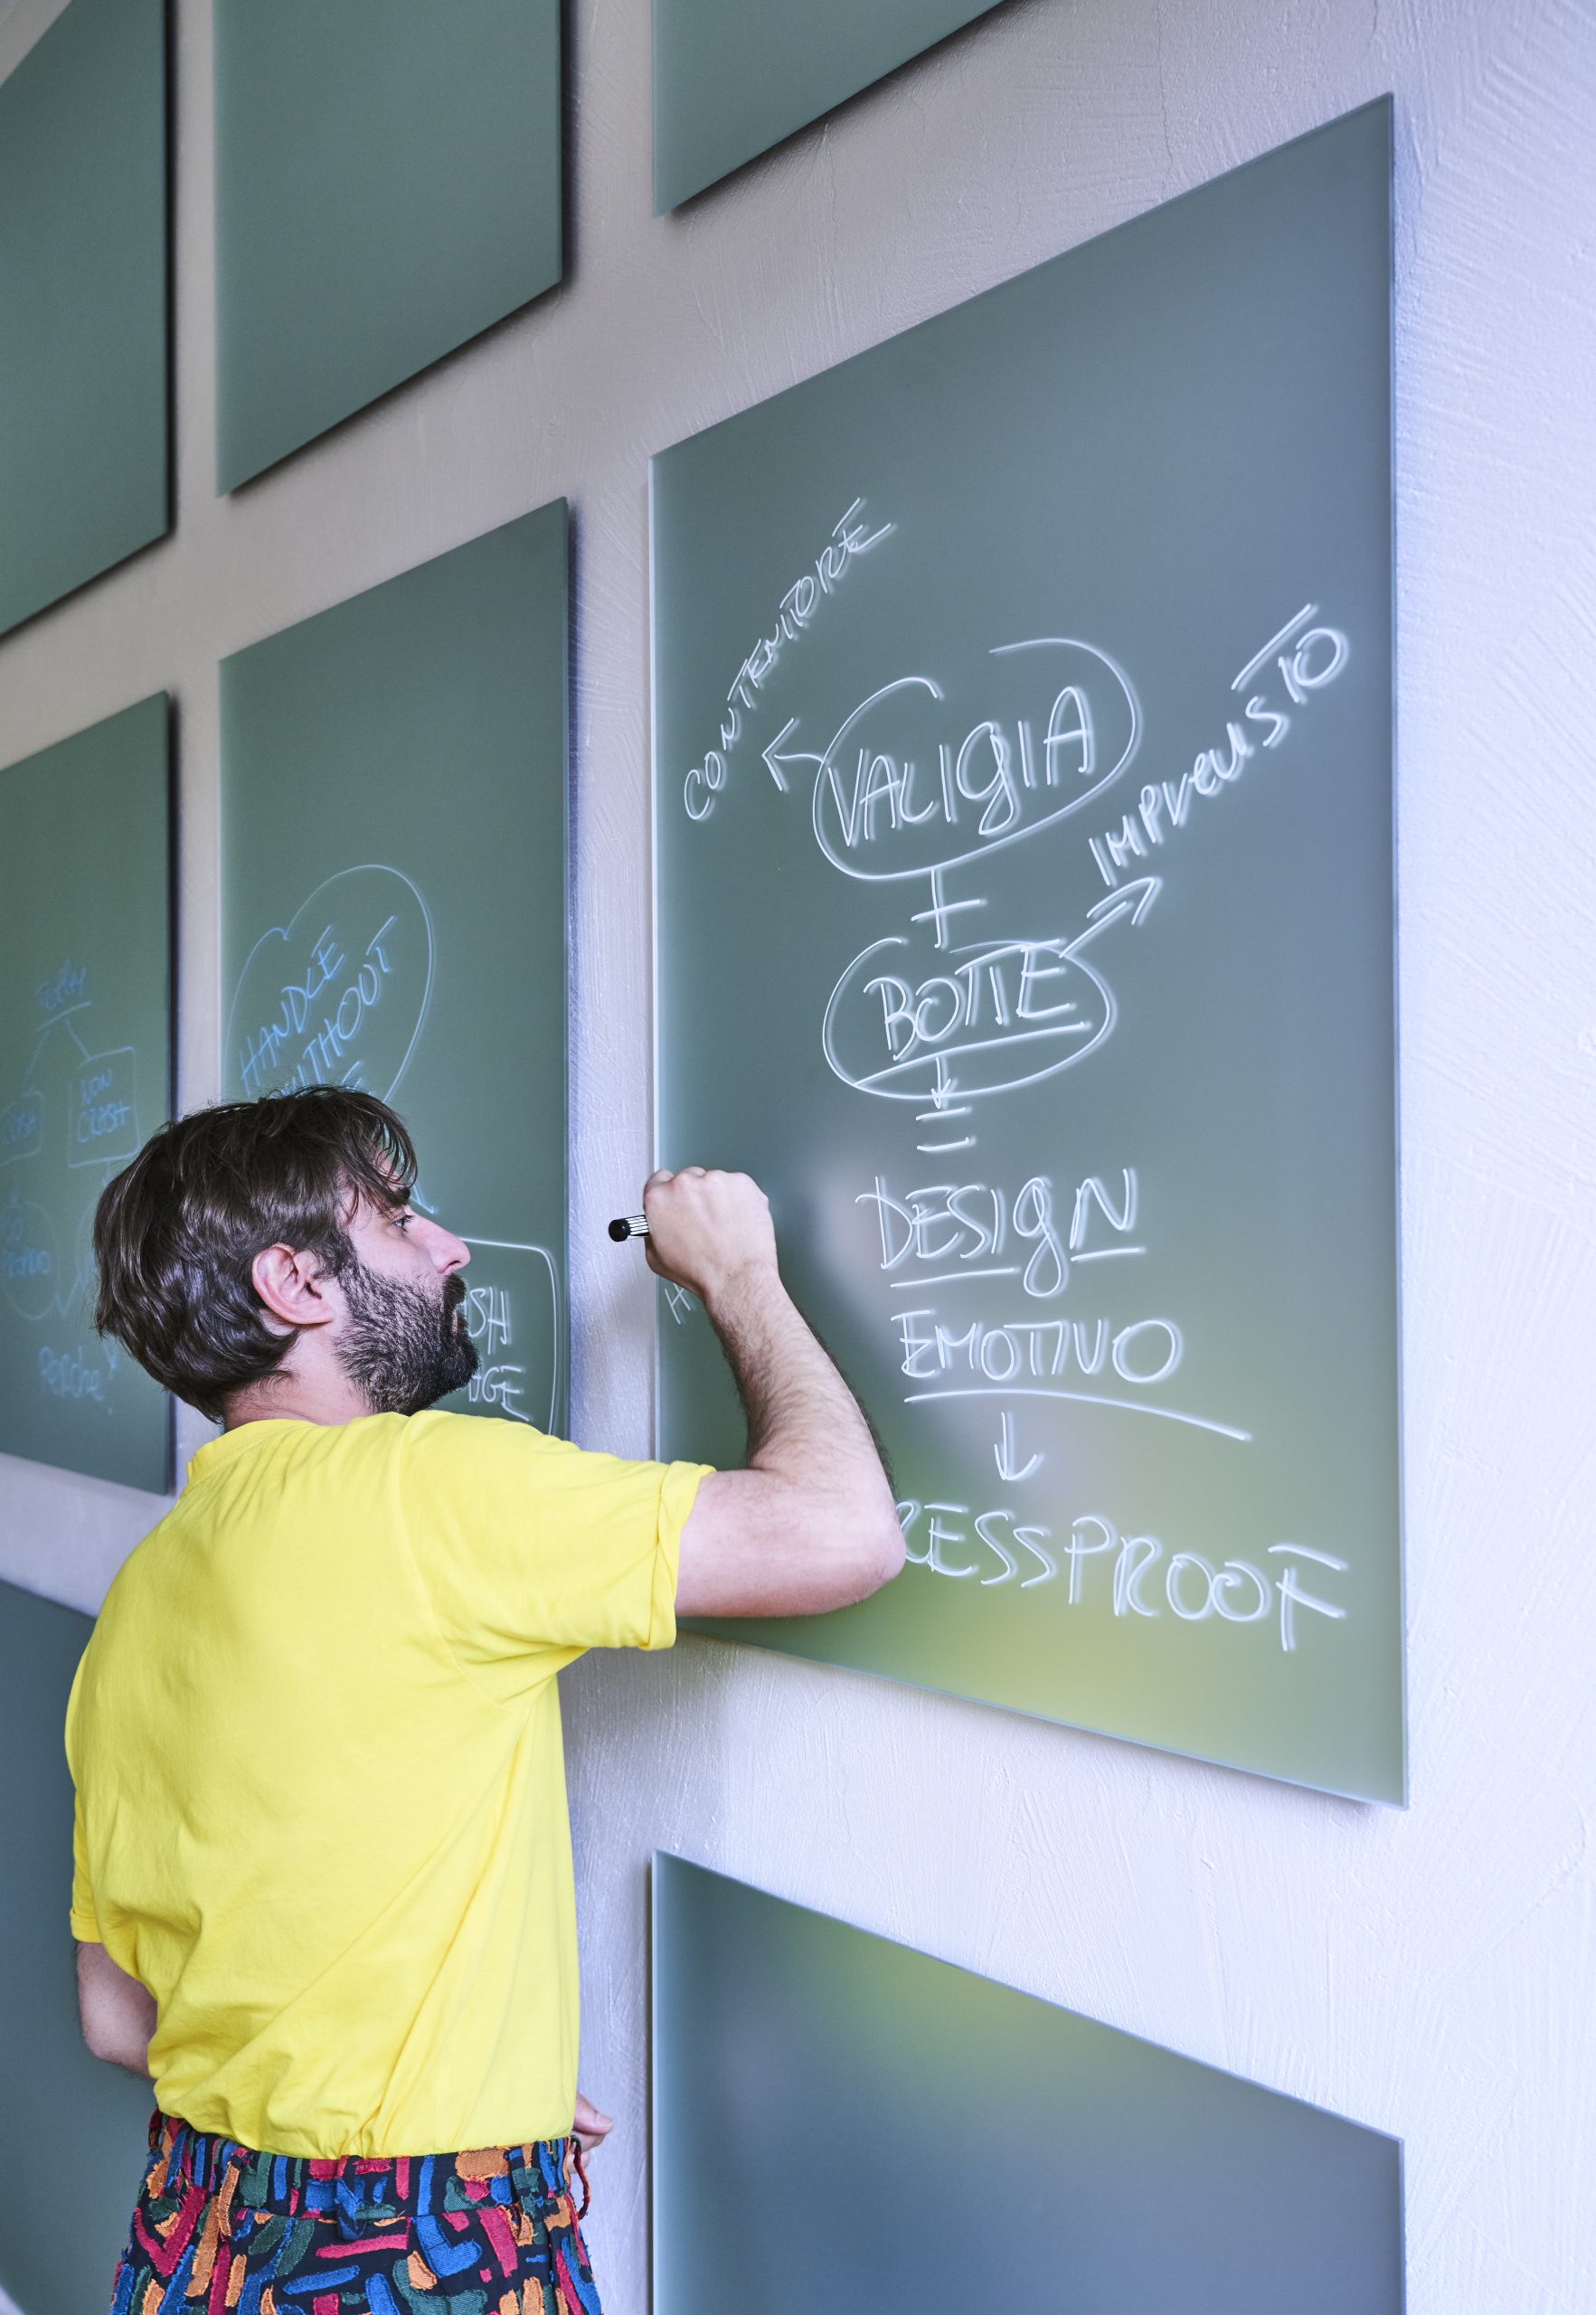 CONTENITORE
VALIGIA
IMPREVISTO
+
BOTTE
=
DESIGN
EMOTIVO
RESSPROOF
HANDLE
WITHOUT
NON
CRASH